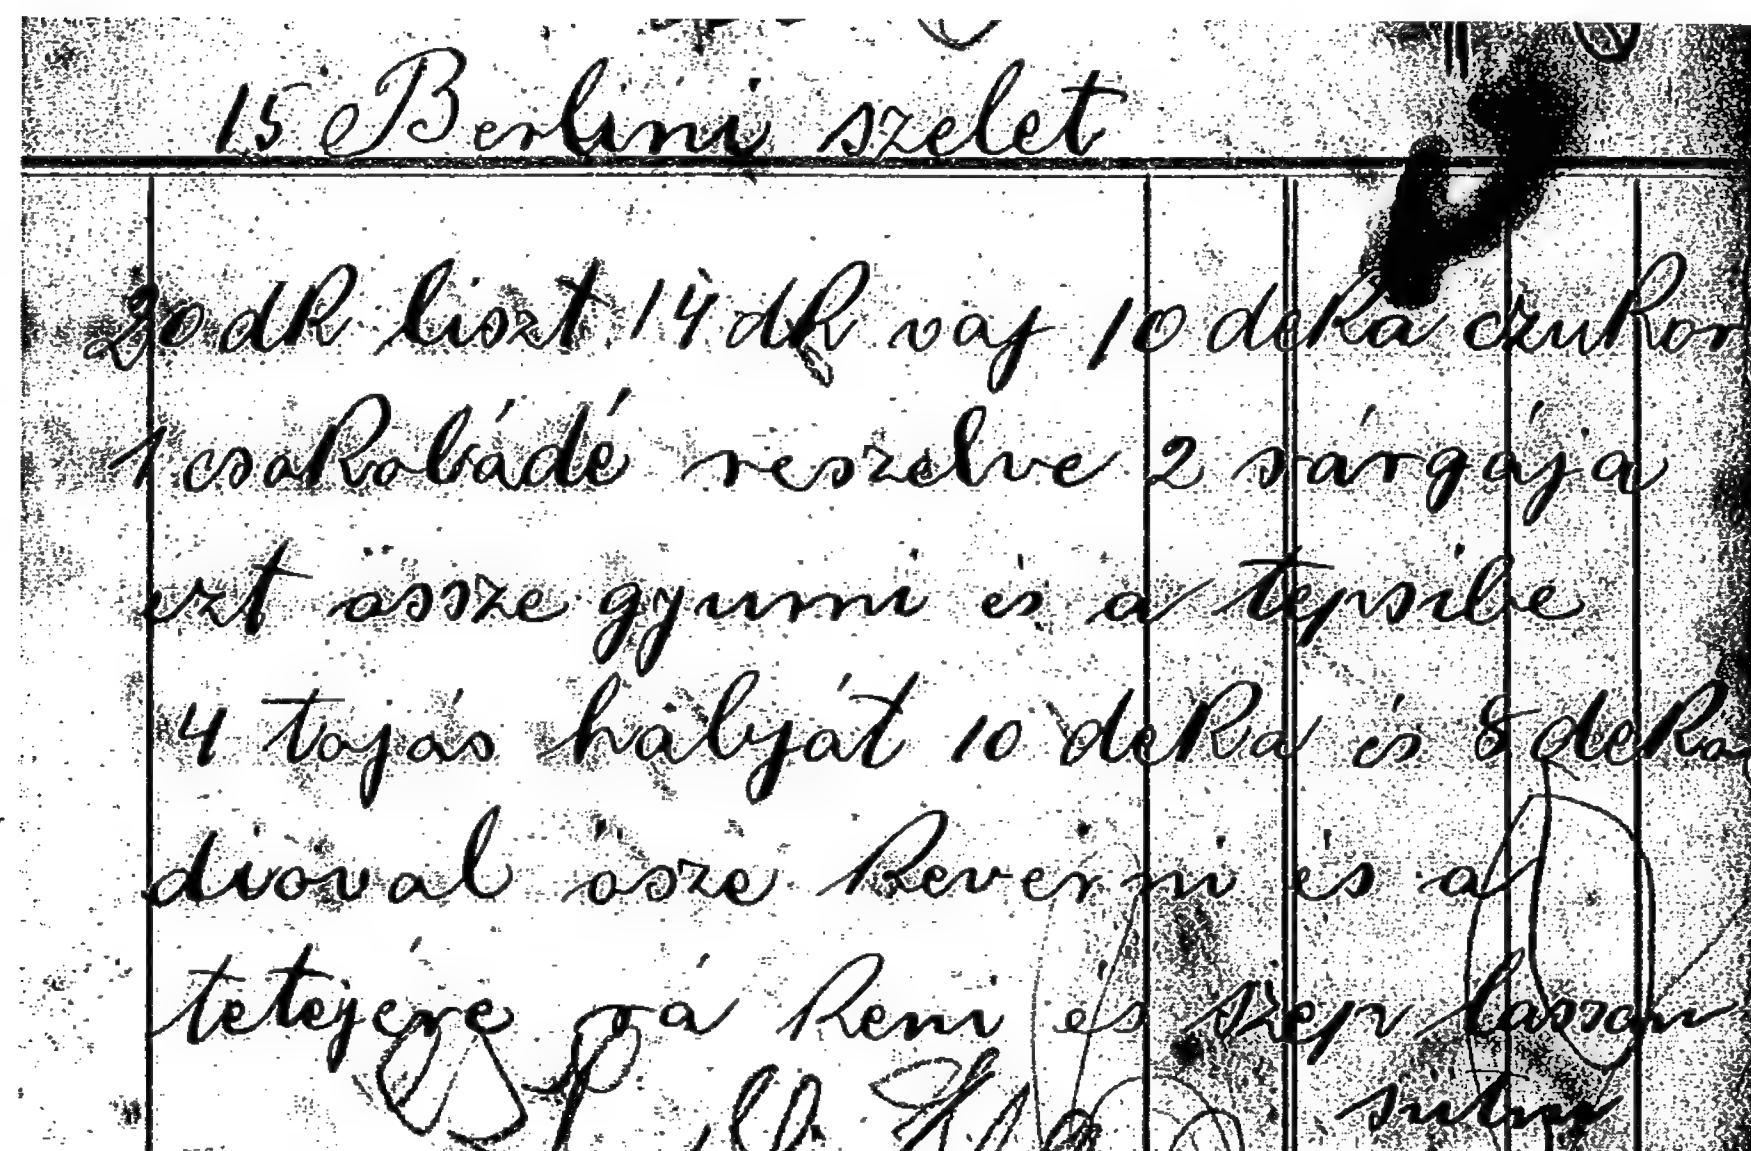 15 Berlini szelet
20 dk liszt 14 dk vaj 10 deka czukor
1 csokoládé reszelve 2 sárgája
ezt össze gyurni és a tepsibe
4 tojás habját 10 deka és 8 deka
diovalösze keverni és a
tetejére rá keni és szép lassan
sutni